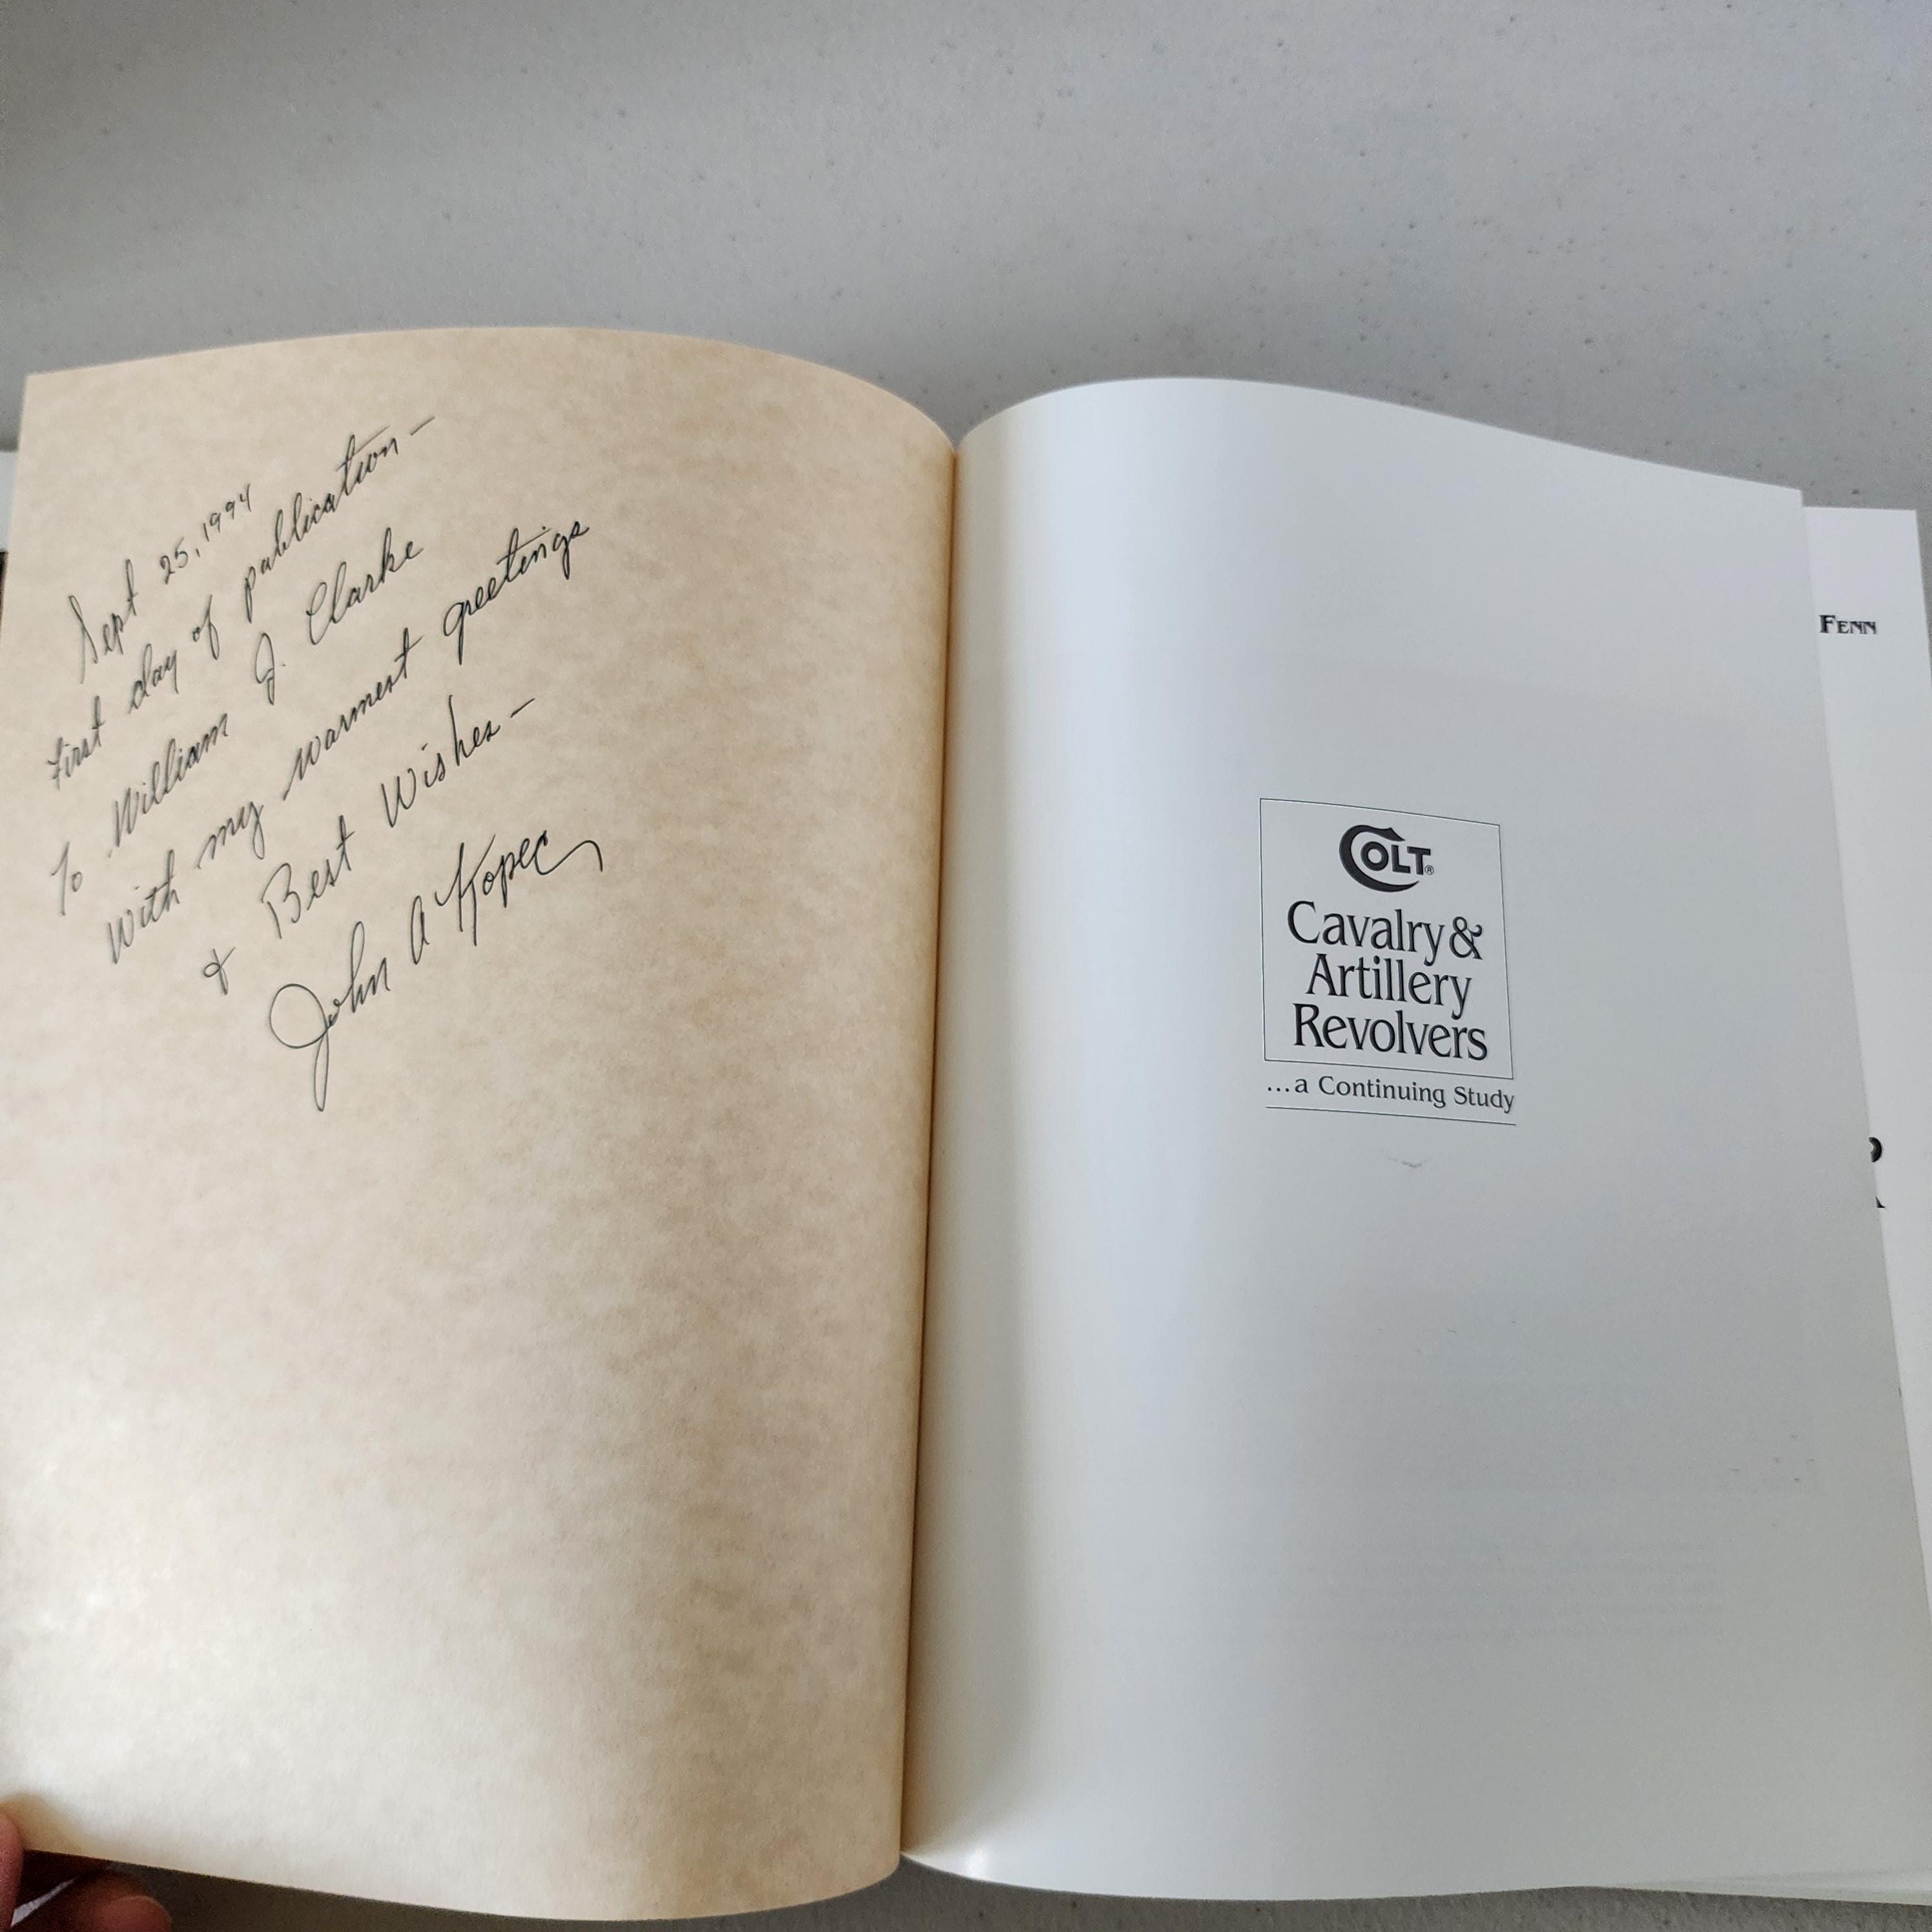 Sept 25, 1994
First day of publication —
To William J. Clarke
with my warmest greetings
& Best Wishes —
John A Kopec
COLT®
Cavalry &
Artillery
Revolvers
...a Continuing Study
FENN
R